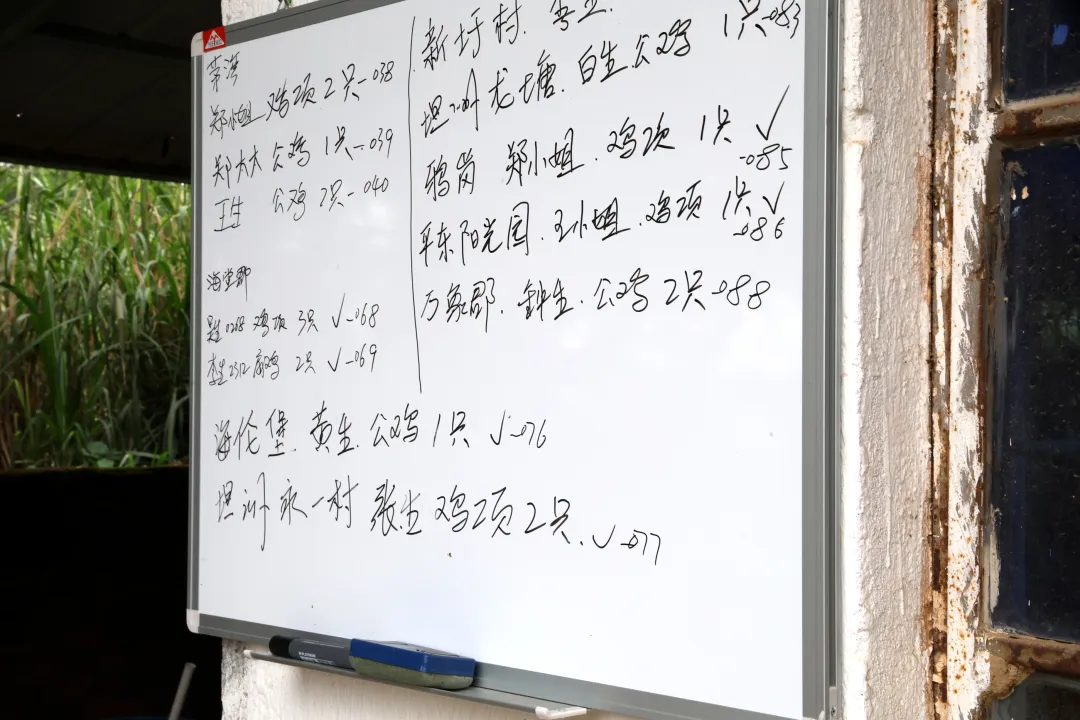 郑小姐 鸡项 2只-038
郑太太 公鸡 1只-039
王生 公鸡 2只-040
海堂郡
0268 鸡项 3只 √-068
李生2312 阉鸡 2只 √-069
海伦堡.黄生.公鸡 1只 √-076
坦洲永一村 张生 鸡项2只.√-077
新圩村.
坦洲龙塘.白生.公鸡 1只-083
鸦岗 郑小姐.鸡项 1只 √
-085
平东阳光园.王小姐.鸡项 1只√
-086
万象郡.钟生.公鸡 2只-088